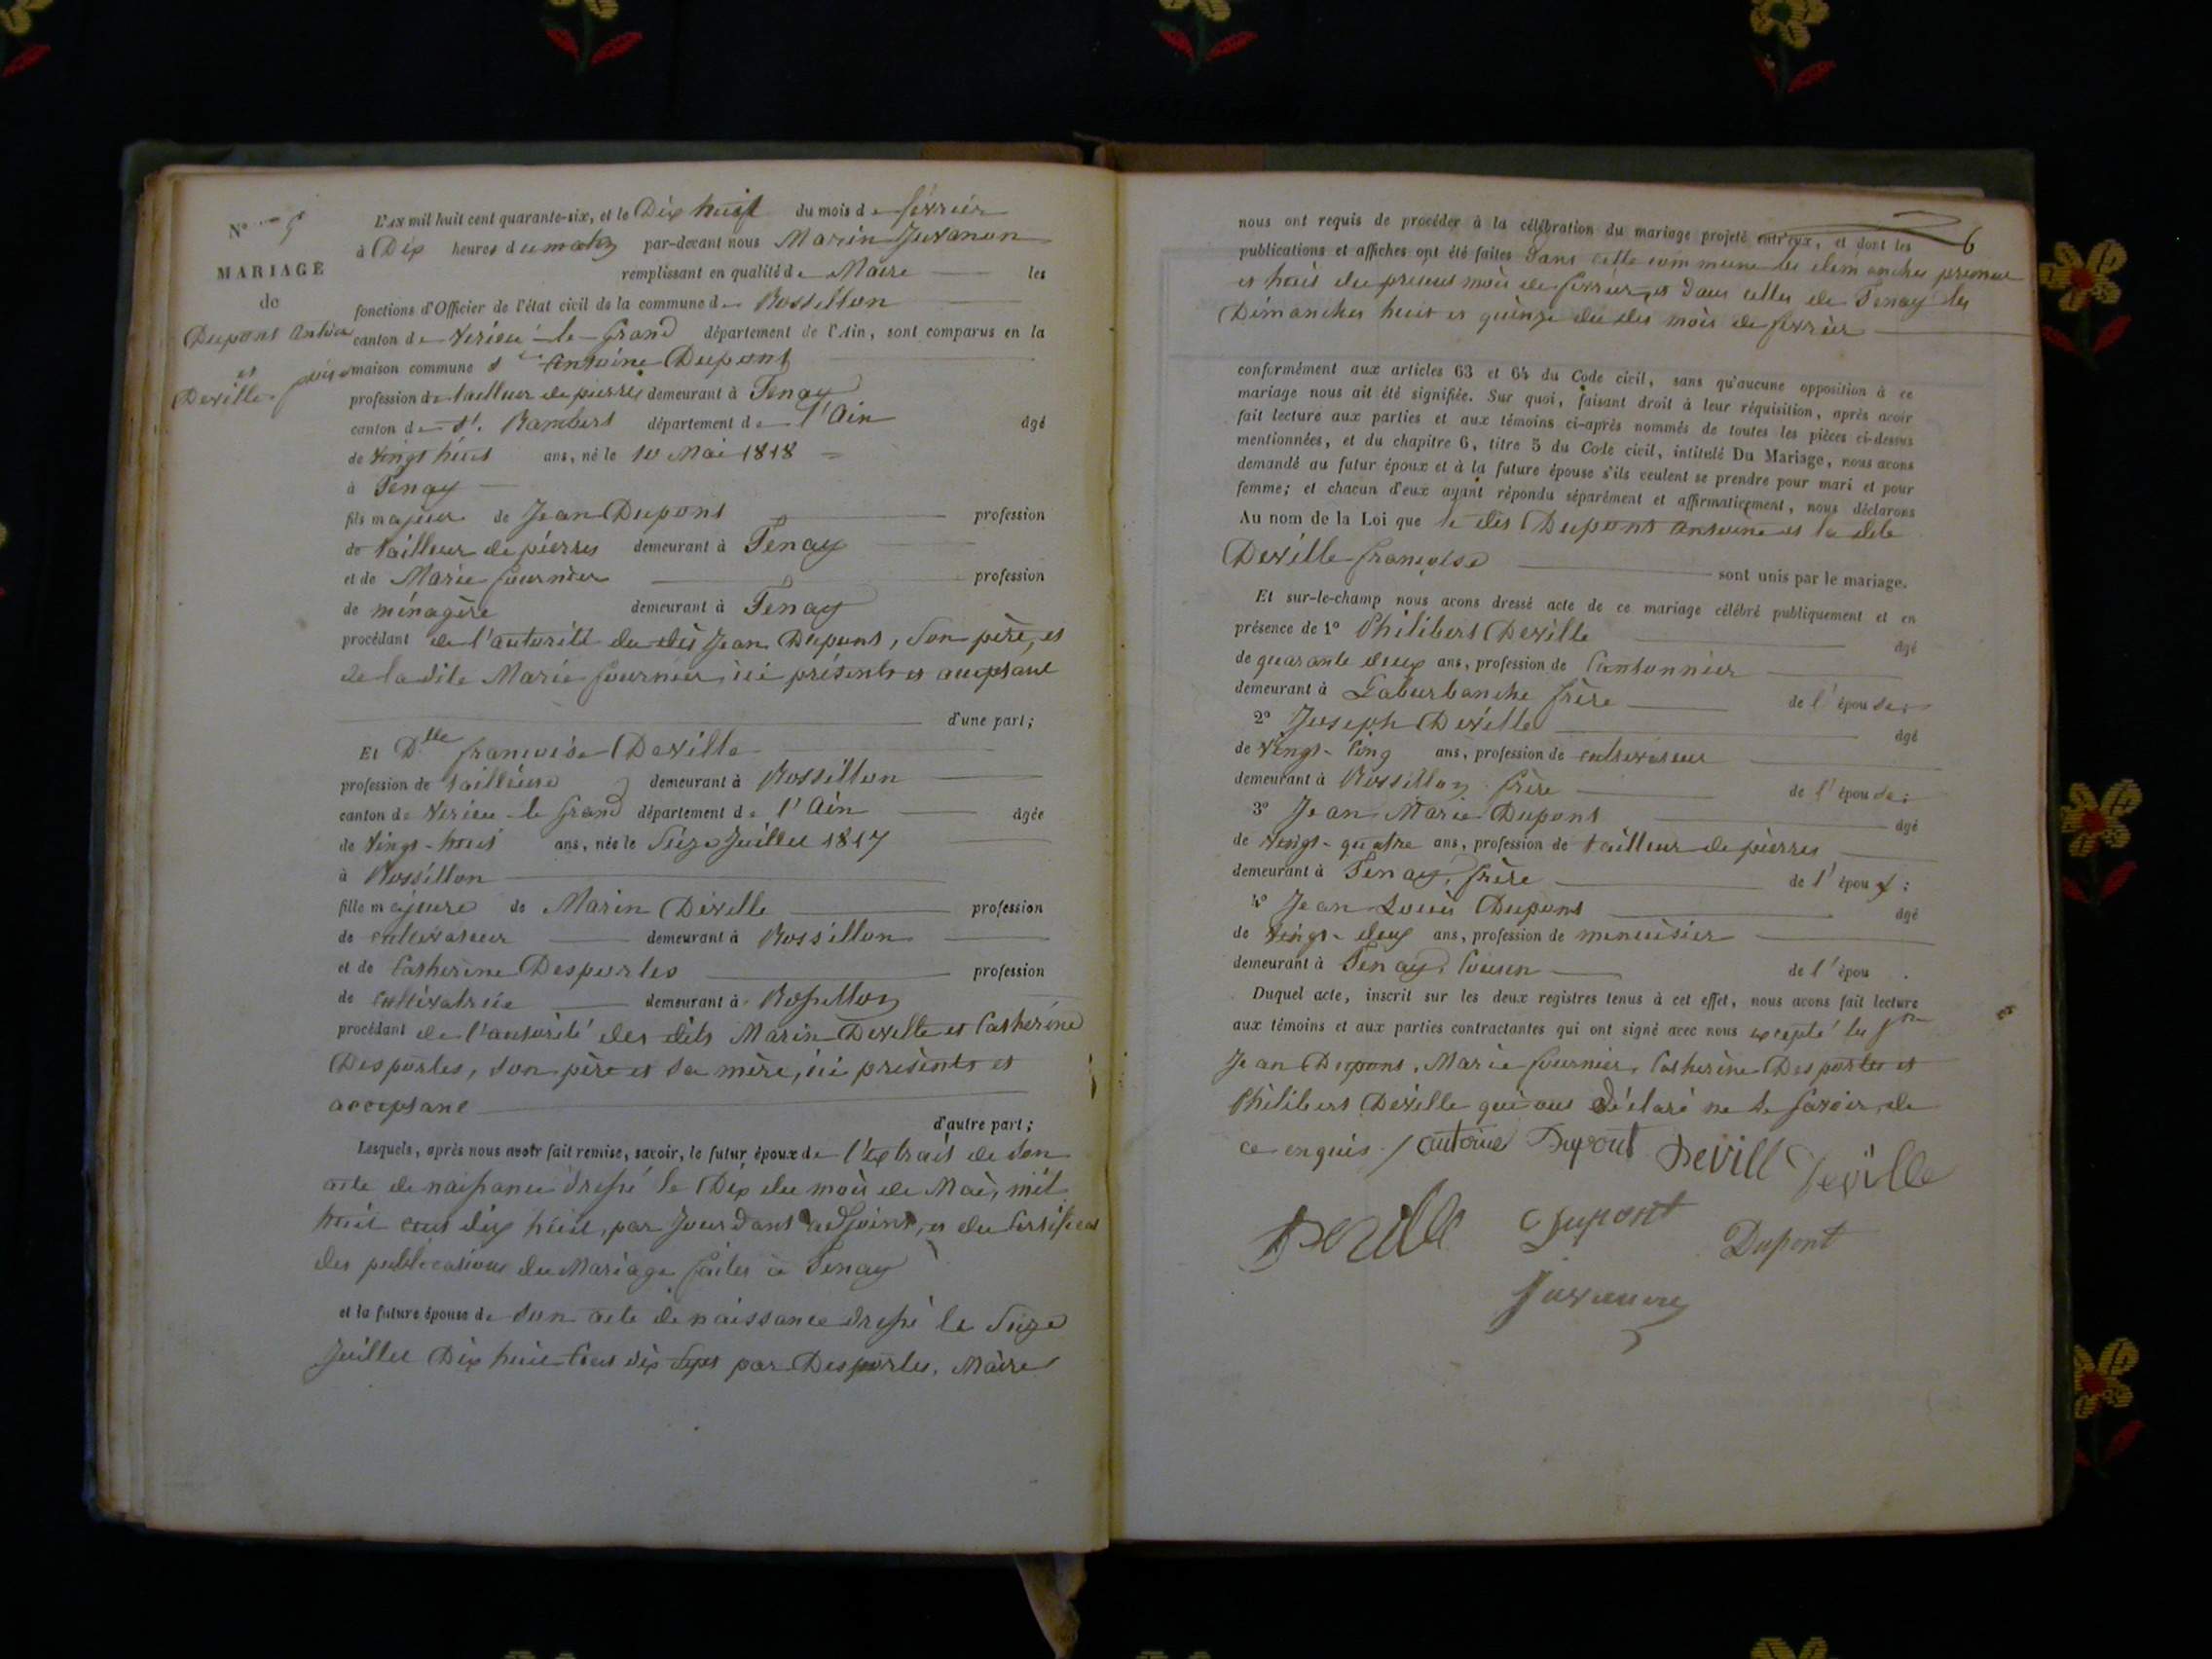 N° 5
MARIAGE
de
Dupont Antoine
et
Deville françoise
L'an mil huit cent quarante-six, et le Dix huit du mois de février
à Dix heures du matin par-devant nous Marin Juvanon
remplissant en qualité de Maire les
fonctions d'Officier de l'état civil de la commune de Rossillon
canton de Virieu-le-Grand département de l'Ain, sont comparus en la
maison commune Sr Antoine Dupont
profession de tailleur de pierres demeurant à Tenay
canton de St. Rambert département de l'Ain âgé
de vingt huit ans, né le 10 Mai 1818
à Tenay
fils majeur de Jean Dupont profession
de tailleur de pierres demeurant à Tenay
et de Marie fournier profession
de ménagère demeurant à Tenay
procédant de l'autorité du dit Jean Dupont, son père, et
de la dite Marie fournier, ici présents et acceptant
d'une part;
Et Dlle françoise Deville
profession de tailleuse demeurant à Rossillon
canton de Virieu le Grand département de l'Ain âgée
de vingt-huit ans, née le Seize Juillet 1817
à Rossillon
fille majeure de Marin Deville profession
de cultivateur demeurant à Rossillon
et de Catherine Desportes profession
de cultivatrice demeurant à Rossillon
procédant de l'autorité des dits Marin Deville et Catherine
Desportes, son père et sa mère, ici présents et
acceptant
d'autre part;
Lesquels, après nous avoir fait remise, savoir, le futur époux de l'extrait de son
acte de naissance dressé le Dix du mois de Mai, mil
huit cent dix huit, par Jourdant adjoint, et du Certificat
des publications du Mariage faites à Tenay
et la future épouse de son acte de naissance dressé le Seize
Juillet Dix huit Cent dix Sept par Desportes, Maire
6
nous ont requis de procéder à la célébration du mariage projeté entr'eux, et dont les
publications et affiches ont été faites dans cette commune les dimanches premier
et huit du présent mois de février, et dans celles de Tenay les
Dimanches huit et quinze du dit mois de février
conformément aux articles 63 et 64 du Code civil, sans qu'aucune opposition à ce
mariage nous ait été signifiée. Sur quoi, faisant droit à leur réquisition, après avoir
fait lecture aux parties et aux témoins ci-après nommés de toutes les pièces ci-dessus
mentionnées, et du chapitre 6, titre 5 du Code civil, intitulé Du Mariage, nous avons
demandé au futur époux et à la future épouse s'ils veulent se prendre pour mari et pour
femme; et chacun d'eux ayant répondu séparément et affirmativement, nous déclarons
Au nom de la Loi que le dit Dupont antoine et la dite
Deville françoise sont unis par le mariage.
Et sur-le-champ nous avons dressé acte de ce mariage célébré publiquement et en
présence de 1° Philibert Deville âgé
de quarante deux ans, profession de Cantonnier
demeurant à Laburbanche frère de l'épouse;
2° Joseph Deville âgé
de vingt-Cinq ans, profession de cultivateur
demeurant à Rossillon frère de l'épouse;
3° Jean Marie Dupont âgé
de vingt-quatre ans, profession de tailleur de pierres
demeurant à Tenay, frère de l'époux;
4° Jean Louis Dupont âgé
de vingt-deux ans, profession de menuisier
demeurant à Tenay, Cousin de l'épou.
Duquel acte, inscrit sur les deux registres tenus à cet effet, nous avons fait lecture
aux témoins et aux parties contractantes qui ont signé avec nous excepté les
Jean Dupont, Marie fournier, Catherine Desportes et
Philibert Deville qui ont déclaré ne le savoir, de
ce enquis. antoine Dupont Devill Deville
Deville Dupont Dupont
Juvanon